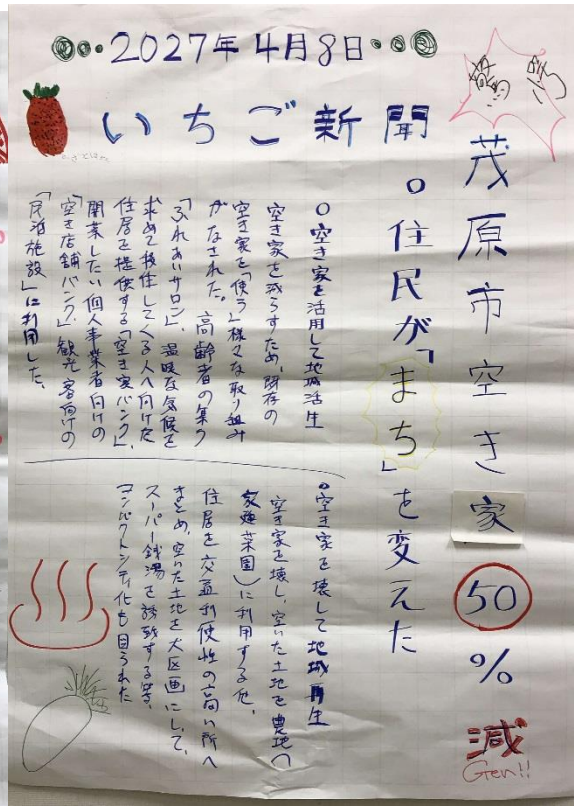 2027年4月8日
いちご新聞
驚
茂原市空き家50%減
Gen!!
○住民が「まち」を変えた
○空き家を活用して地域活生
空き家を減らすため、既存の
空き家を「使う」様々な取り組み
がなされた。高齢者の集う
「ふれあいサロン」、温暖な気候を
求めて移住してくる人へ向けた
住居を提供する「空き家バンク」、
開業したい個人事業者向けの
「空き店舗バンク」、観光客向けの
「民泊施設」に利用した。
○空き家を壊して地域再生
空き家を壊し、空いた土地を農地(
家庭菜園)に利用する他、
住居を交通利便性の高い所へ
まとめ、空いた土地を大区画にして、
スーパー銭湯を誘致する等、
コンパクトシティ化も図られた